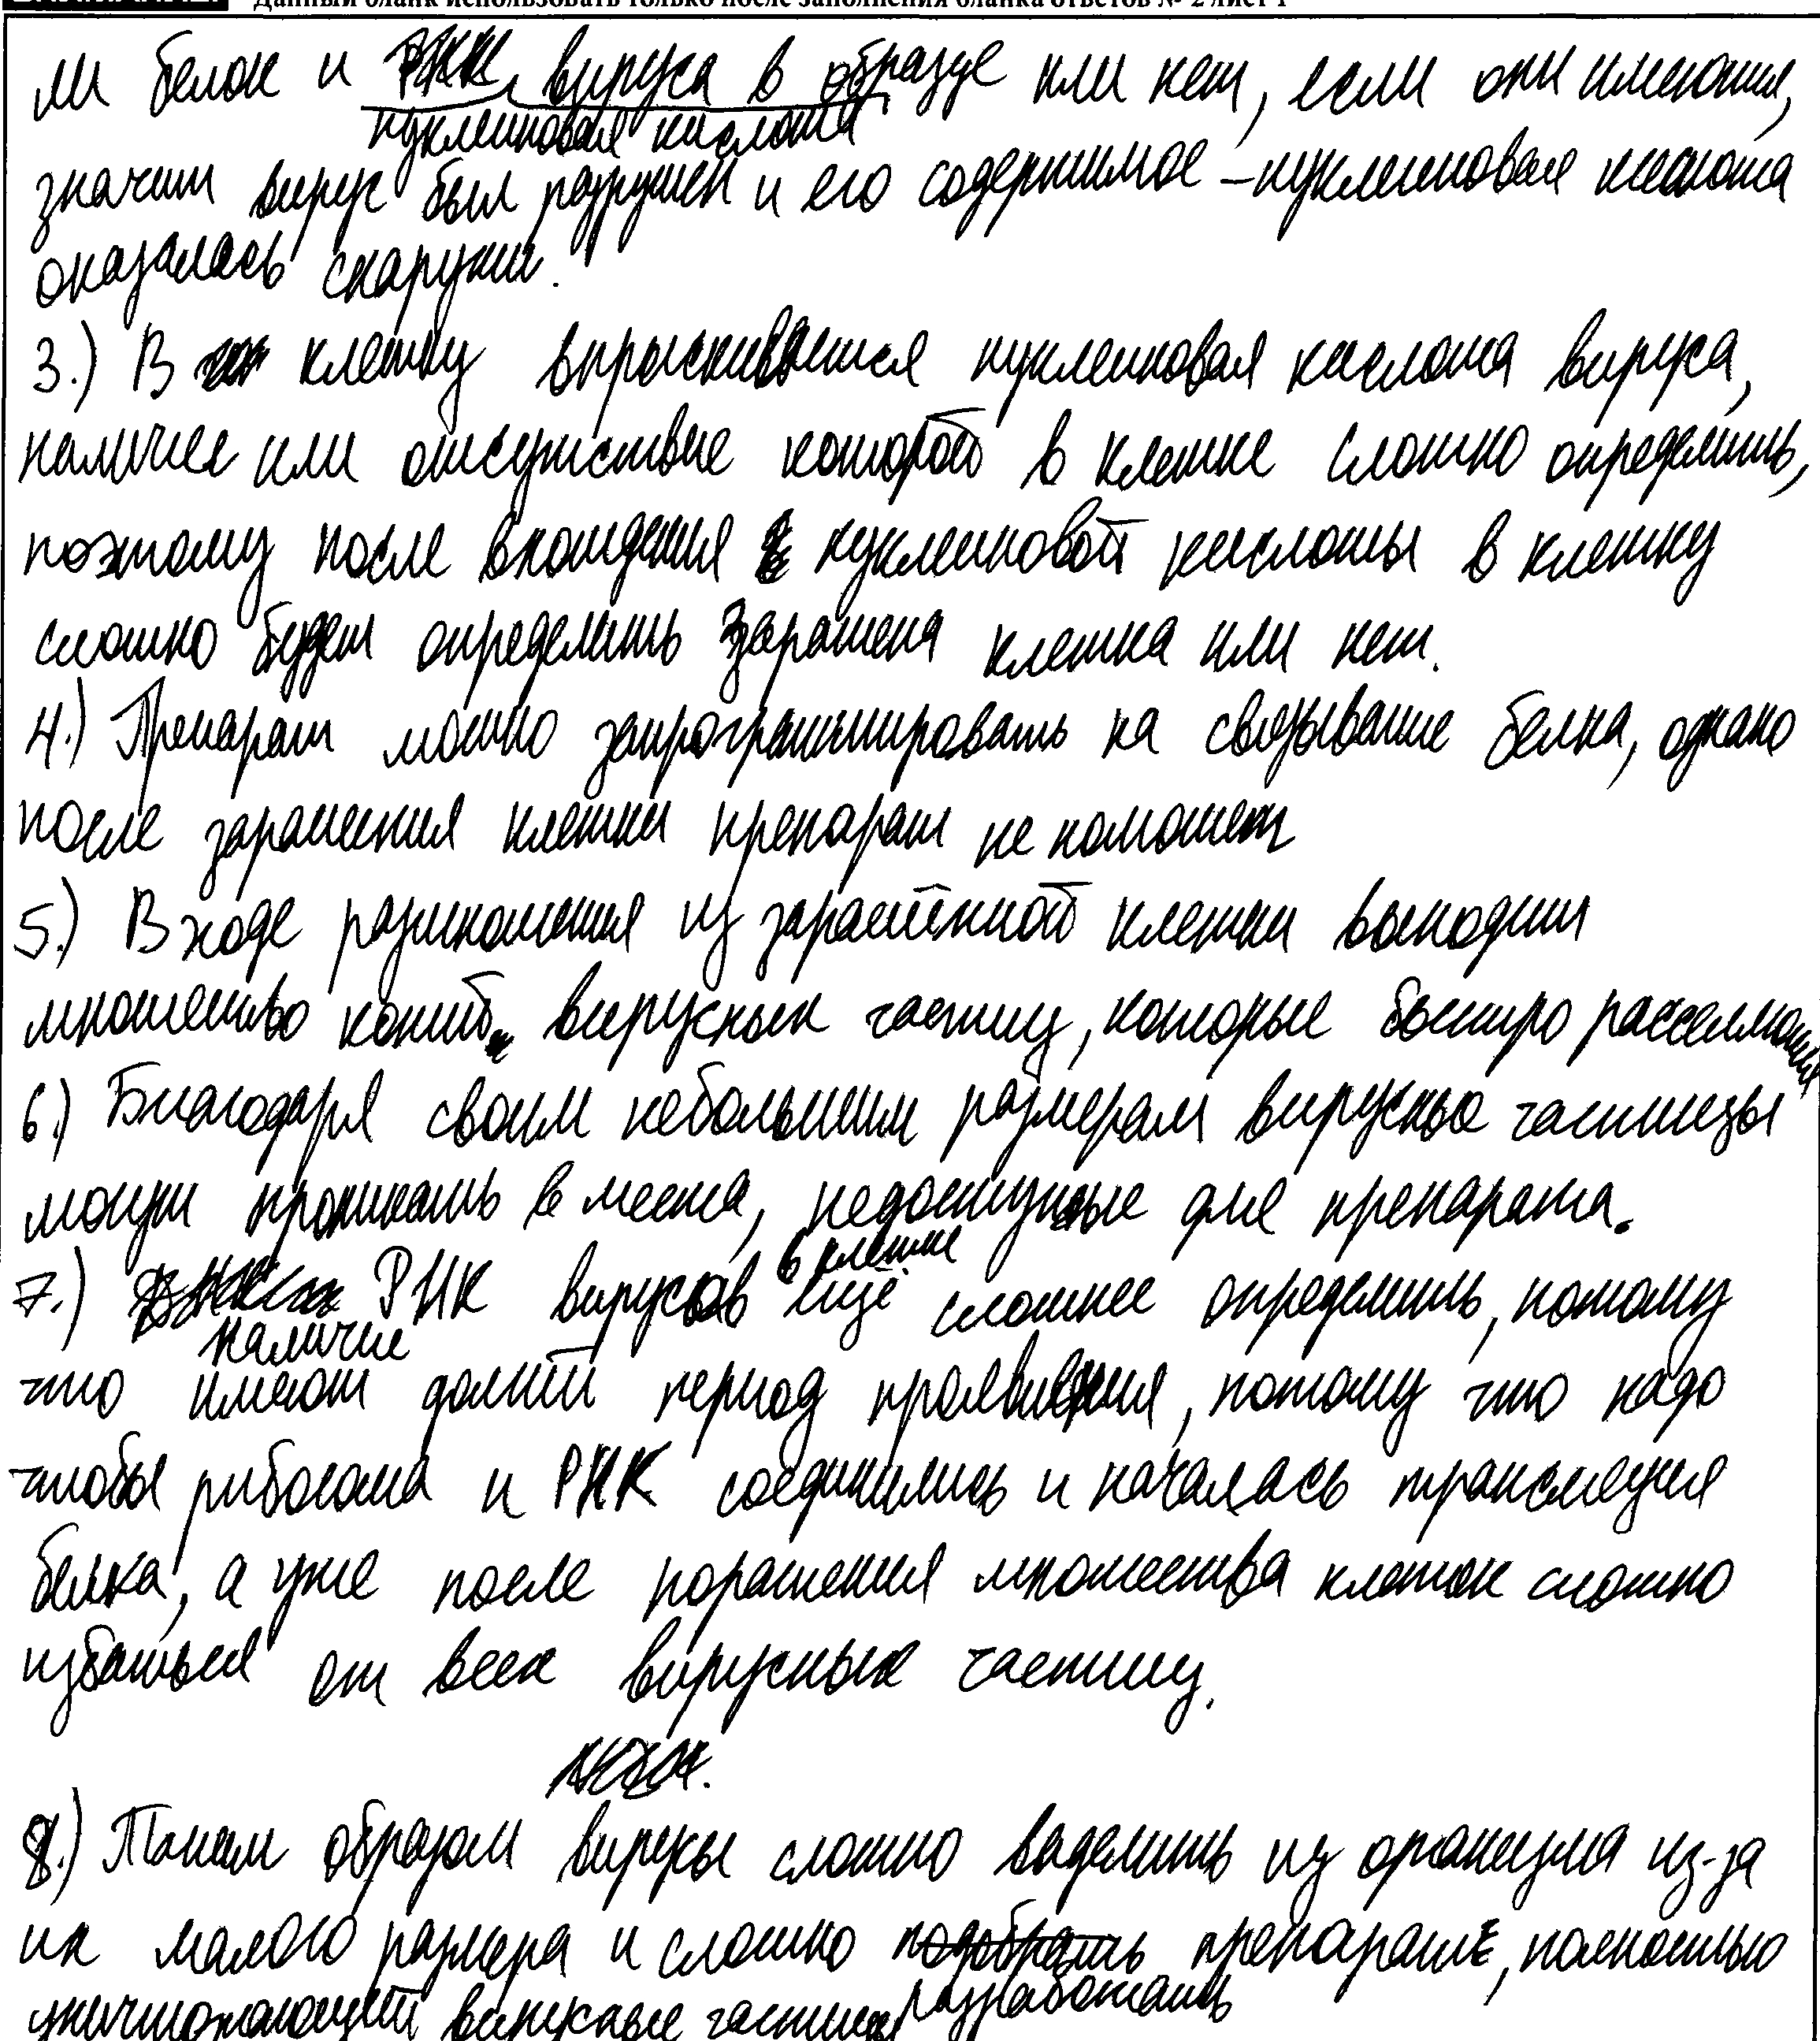 Данный бланк использовать только после заполнения бланка ответов № 2 лист 1
ли белок и РНК вируса в образце или нет, если они имеются,
нуклеиновая кислота
значит вирус был разрушен и его содержимое – нуклеиновая кислота
оказалась снаружи.
3.) В клетку впрыскивается нуклеиновая кислота вируса,
наличие или отсутствие которой в клетке сложно определить,
поэтому после вхождения нуклеиновой кислоты в клетку
сложно будет определить заражена клетка или нет.
4.) Препарат можно запрограммировать на связывание белка, однако
после заражения клетки препарат не поможет
5.) В ходе размножения из заражённой клетки выходит
множество копий вирусных частиц, которые быстро расселяются
6.) Благодаря своим небольшим размерам вирусные частицы
могут проникать в места, недоступные для препарата.
в клетке
7.) РНК вирусов ещё сложнее определить, потому
наличие
что имеют долгий период проявления, потому что надо
чтобы рибосома и РНК соединились и началась трансляция
белка, а уже после поражения множества клеток сложно
избавиться от всех вирусных частиц.
8.) Таким образом вирусы сложно выделить из организма из-за
их малого размера и сложно подобрать препарат, полностью
разработать
уничтожающий вирусные частицы